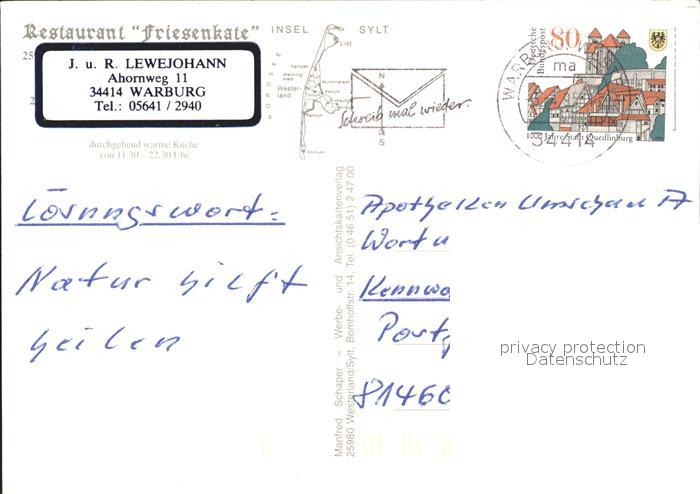 Restaurant "Friesenkate"
J. u. R. LEWEJOHANN
Ahornweg 11
34414 WARBURG
Tel.: 05641 / 2940
durchgehend warme Küche
von 11.30 – 22.30 Uhr
INSEL SYLT
List
Kampen
Wester-
land
NORDSEE
Schreib mal wieder.
WARBURG
ma
34414
80
Deutsche
Bundespost
1000 Jahre Stadt Quedlinburg
Lösungswort:
Natur hilft
heilen
Manfred Schaper – Werbe- und Ansichtskartenverlag
25980 Westerland/Sylt, Bomhoffstr. 14, Tel. (0 46 51) 2 47 00
Apotheken Umschau A
Wort u
Kennwo
Post
81460
privacy protection
Datenschutz